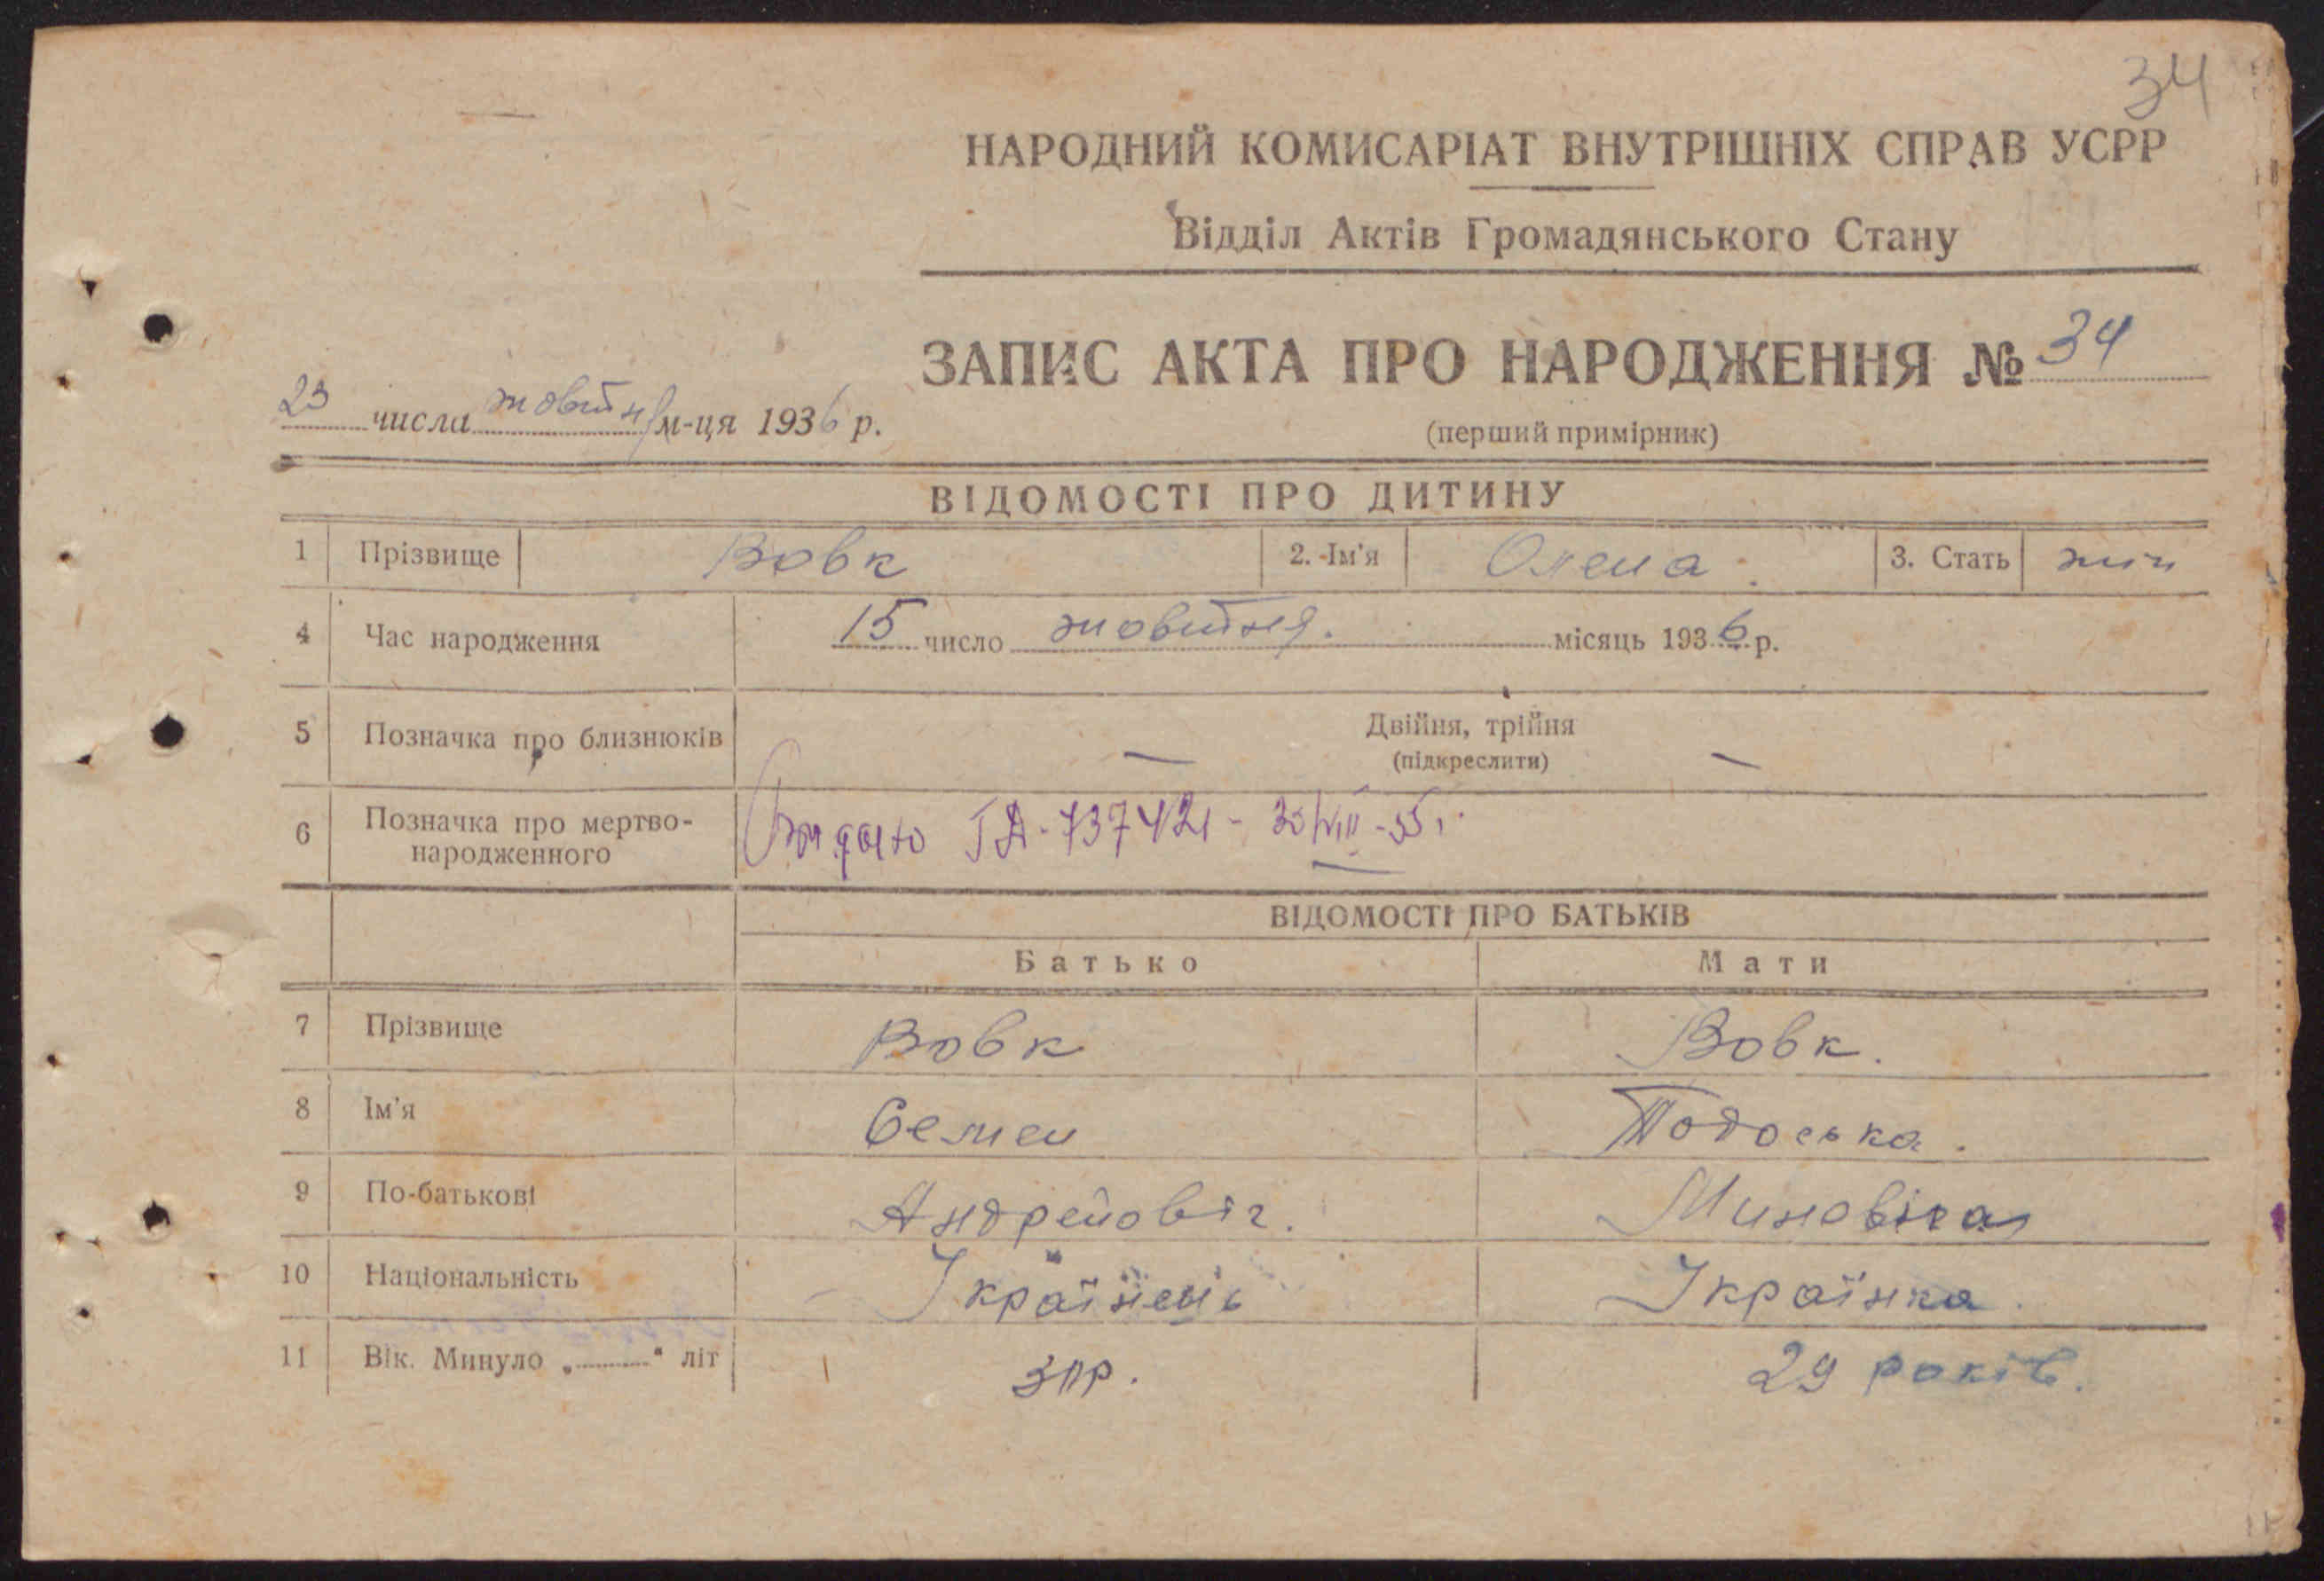 34
НАРОДНИЙ КОМИСАРІАТ ВНУТРІШНІХ СПРАВ УСРР
Відділ Актів Громадянського Стану
ЗАПИС АКТА ПРО НАРОДЖЕННЯ № 34
23 числа жовтня м-ця 1936 р.
(перший примірник)
ВІДОМОСТІ ПРО ДИТИНУ
1 Прізвище Вовк 2. Ім'я Олена. 3. Стать жін
4 Час народження 15 число жовтня. місяць 1936 р.
5 Позначка про близнюків — Двійня, трійня —
(підкреслити)
6 Позначка про мертво-
народженного
Видано — 737421 -
ВІДОМОСТІ ПРО БАТЬКІВ
Батько Мати
7 Прізвище Вовк Вовк.
8 Ім'я Семен Тодоська.
9 По-батькові Андрейовіч.
10 Національність Українець Українка.
11 Вік. Минуло „ “ літ 29 років.